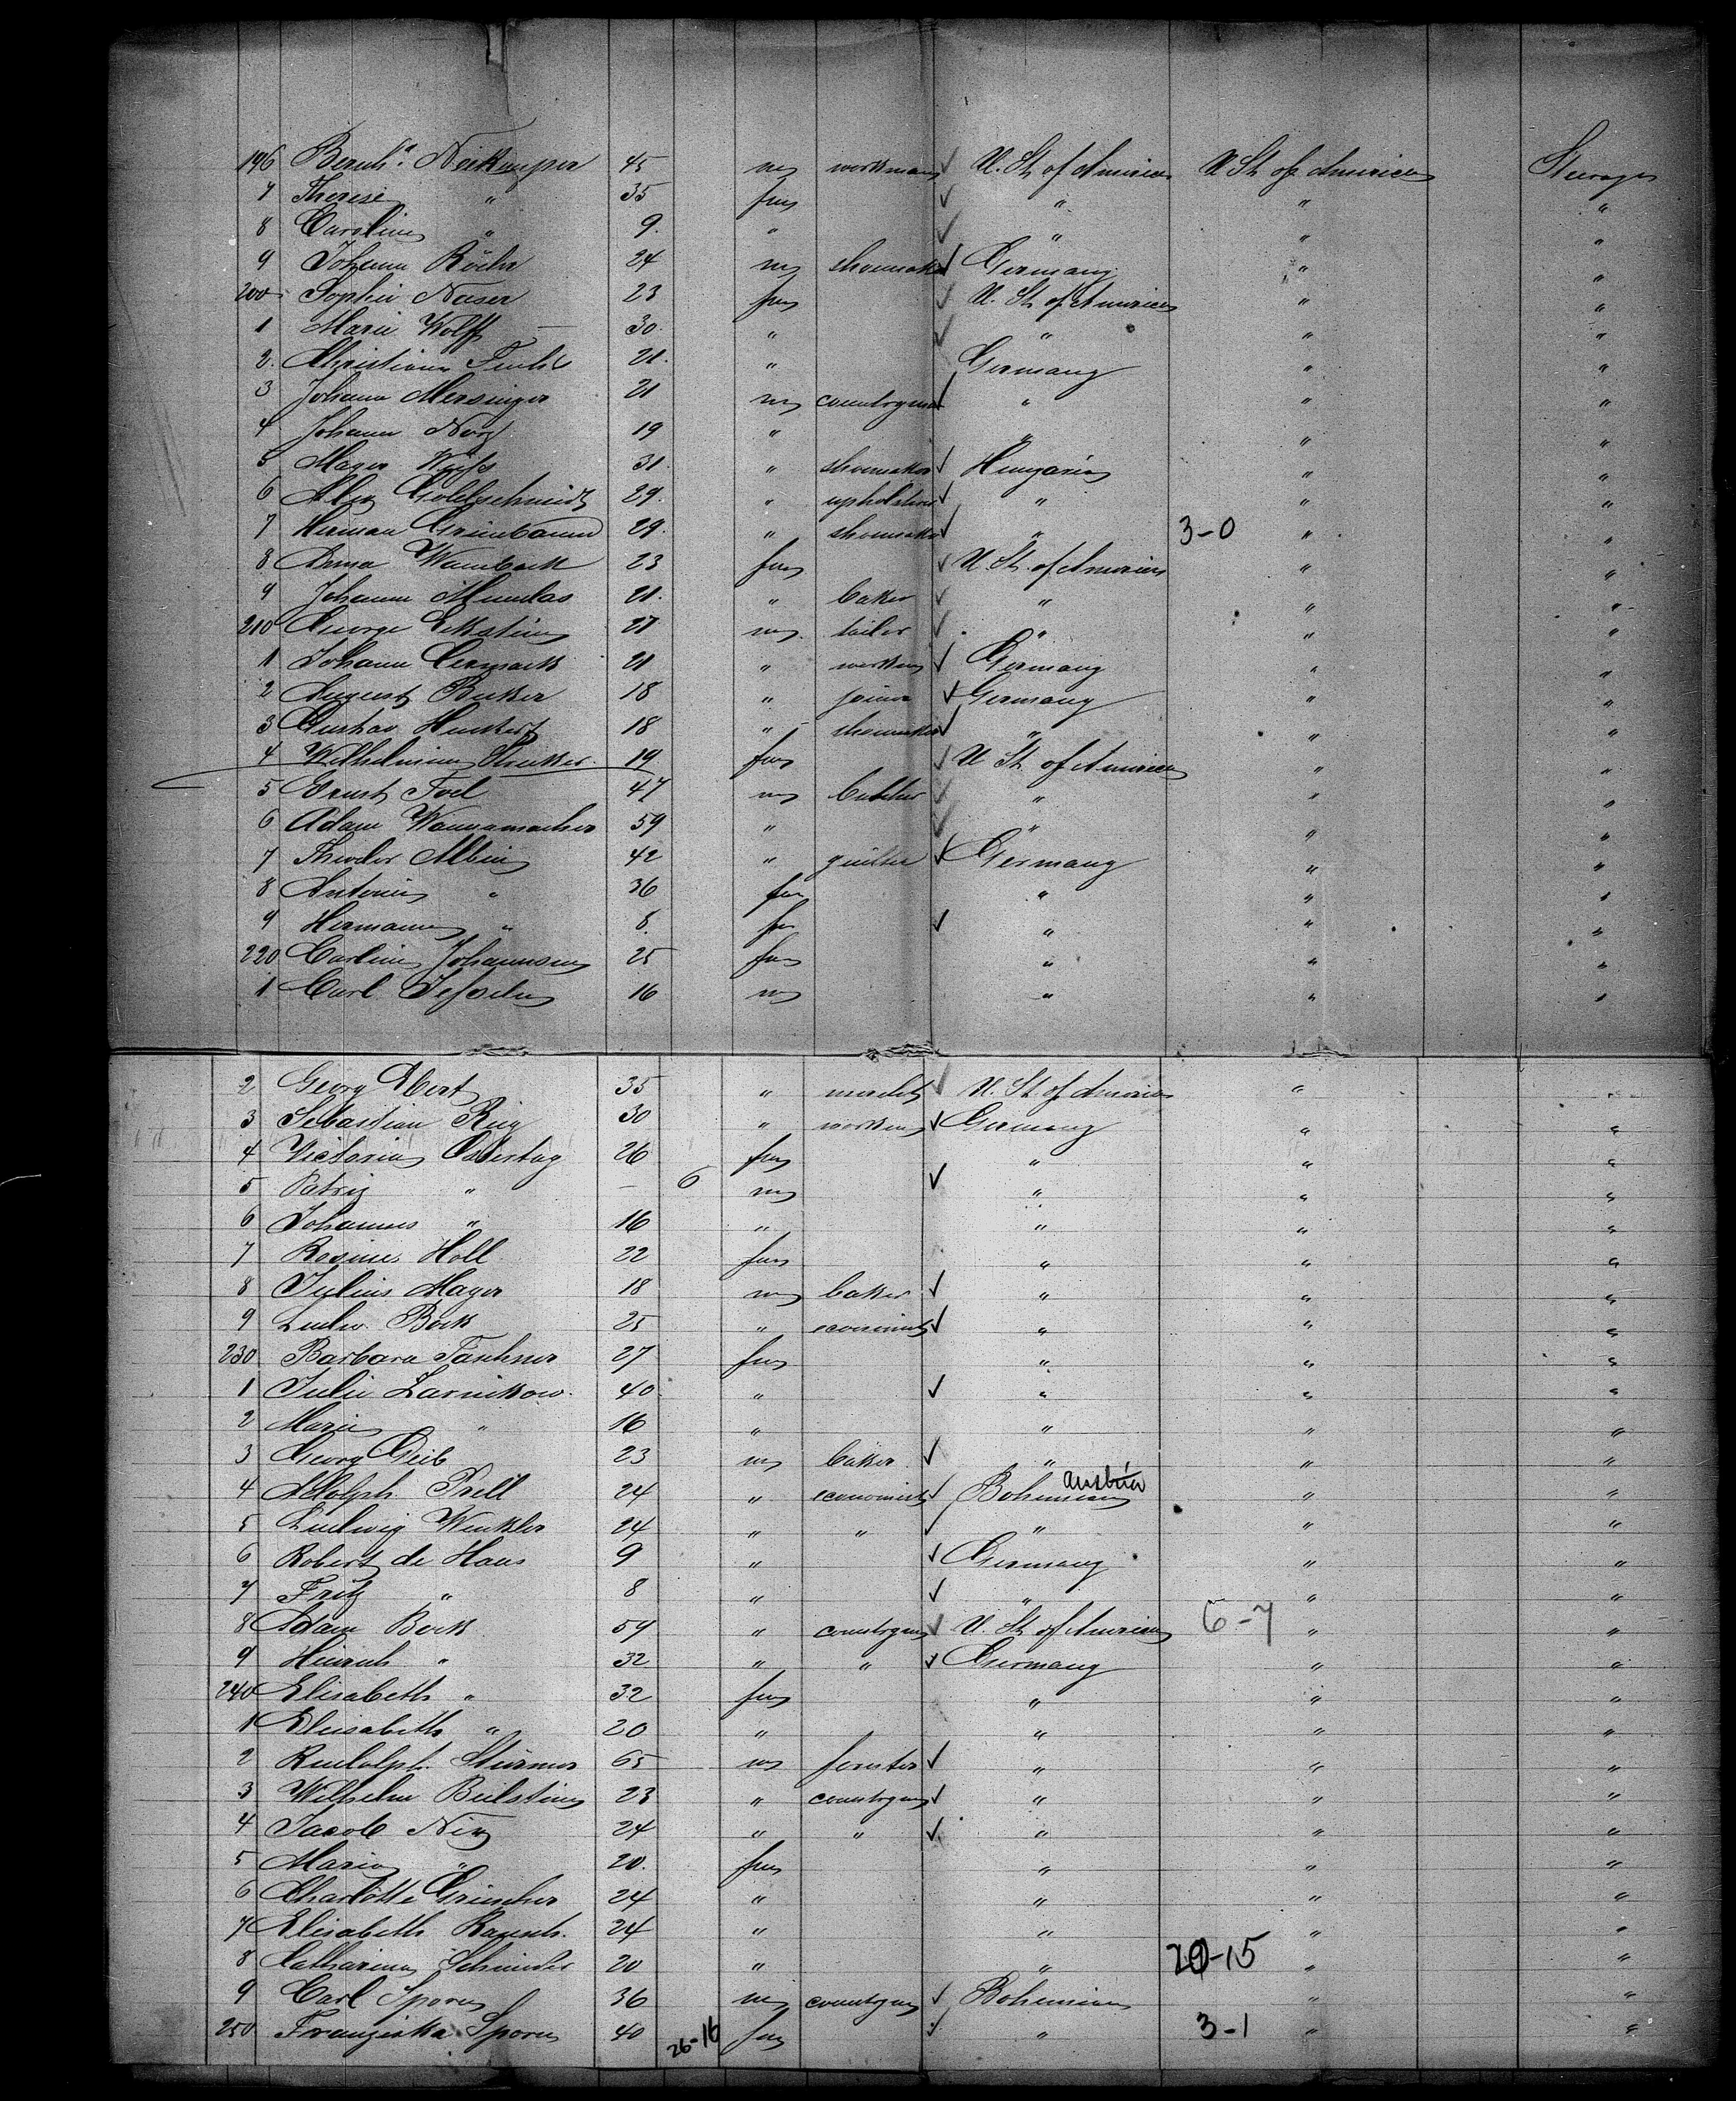 196 Bernhd. Neikamper 45 m workman ✓ U. St. of America U St of America Steerage
7 Therese " 35 fm ✓ " " "
8 Caroline " 9. " ✓ " " "
9 Johann Röder 24 m shoemaker ✓ Germany " "
200 Sophie Naser 23 fm ✓ U. St. of America " "
1 Marie Wolff 30. " ✓ " " "
2. Christiane 21. " Germany " "
3 Johann Mersinger 21 m countryman ✓ " " "
4 Johann 19 " " " "
5 Mayer Weiss 31. " shoemaker ✓ Hungaria " "
6 Alex Goldschmidt 29. " upholsterer ✓ " " "
7 Herman Grünbaum 29. " shoemaker ✓ " 3-0 " "
8 Anna Wamback 23 fm ✓ U. St. of America " "
9 Johann Mundas 21. " baker ✓ " " "
210 George Eckstein 27 m. tailor ✓ " " "
1 Johann Cermack 21 " workm ✓ Germany " "
2 August Becker 18 " joiner ✓ Germany " "
3 Gustav Huckert 18 " shoemaker ✓ " " "
4 Wilhelmine Strecker 19 fm ✓ U St. of America " "
5 Ernst Foel 47 m butcher ✓ " " "
6 Adam Wannamacher 59 " ✓ " " "
7 Theodor Albin 42 " quilter ✓ Germany " "
8 Antonie " 36 fm " " "
9 Hermann " 8. fm ✓ " " "
220 Carline Johannsen 25 fm " " "
1 Carl 16 m " " "
2 Georg Ebert 35 " mercht ✓ U. St. of America " "
3 Sebastian Ring 30 " workm ✓ Germany " "
4 Victoria Ostertag 26 fm " " "
5 Patriz " — 6 m ✓ " " "
6 Johannes " 16 " " " "
7 Rosine Holl 22 fm " " "
8 Julius Mayer 18 m baker ✓ " " "
9 Ludw. Böck 25 " economist ✓ " " "
230 Barbara Taschner 27 fm " " "
1 Julie Larnikow 40 " ✓ " " "
2 Marie " 16 " " " "
3 Georg Geib 23 m baker ✓ " " "
4 Adolph Prell 24 " economist ✓ Bohemian Austria " "
5 Ludwig Winkler 24 " " ✓ " " "
6 Robert de Haas 9 " ✓ Germany " "
7 Fritz " 8 " ✓ " " "
8 Adam Bock 59 " countrym ✓ U. St. of America 6-7 " "
9 Heinrich " 32 " " ✓ Germany " "
240 Elisabeth " 32 fm " " "
1 Elisabeth " 20 " " " "
2 Rudolph Stürmer 65 m forester ✓ " " "
3 Wilhelm Beilstein 23 " countrym ✓ " " "
4 Jacob Nix 24 " " ✓ " " "
5 Maria " 20. fm " " "
6 Charlotte Griescher 24 " " " "
7 Elisabeth Rausch. 24 " " " "
8 Catharina Schneider 20 " " 20-15 " "
9 Carl Sporn 36 m countrym ✓ Bohemian " "
250 Franziska Sporn 40 26-16 fm ✓ " 3-1 " "